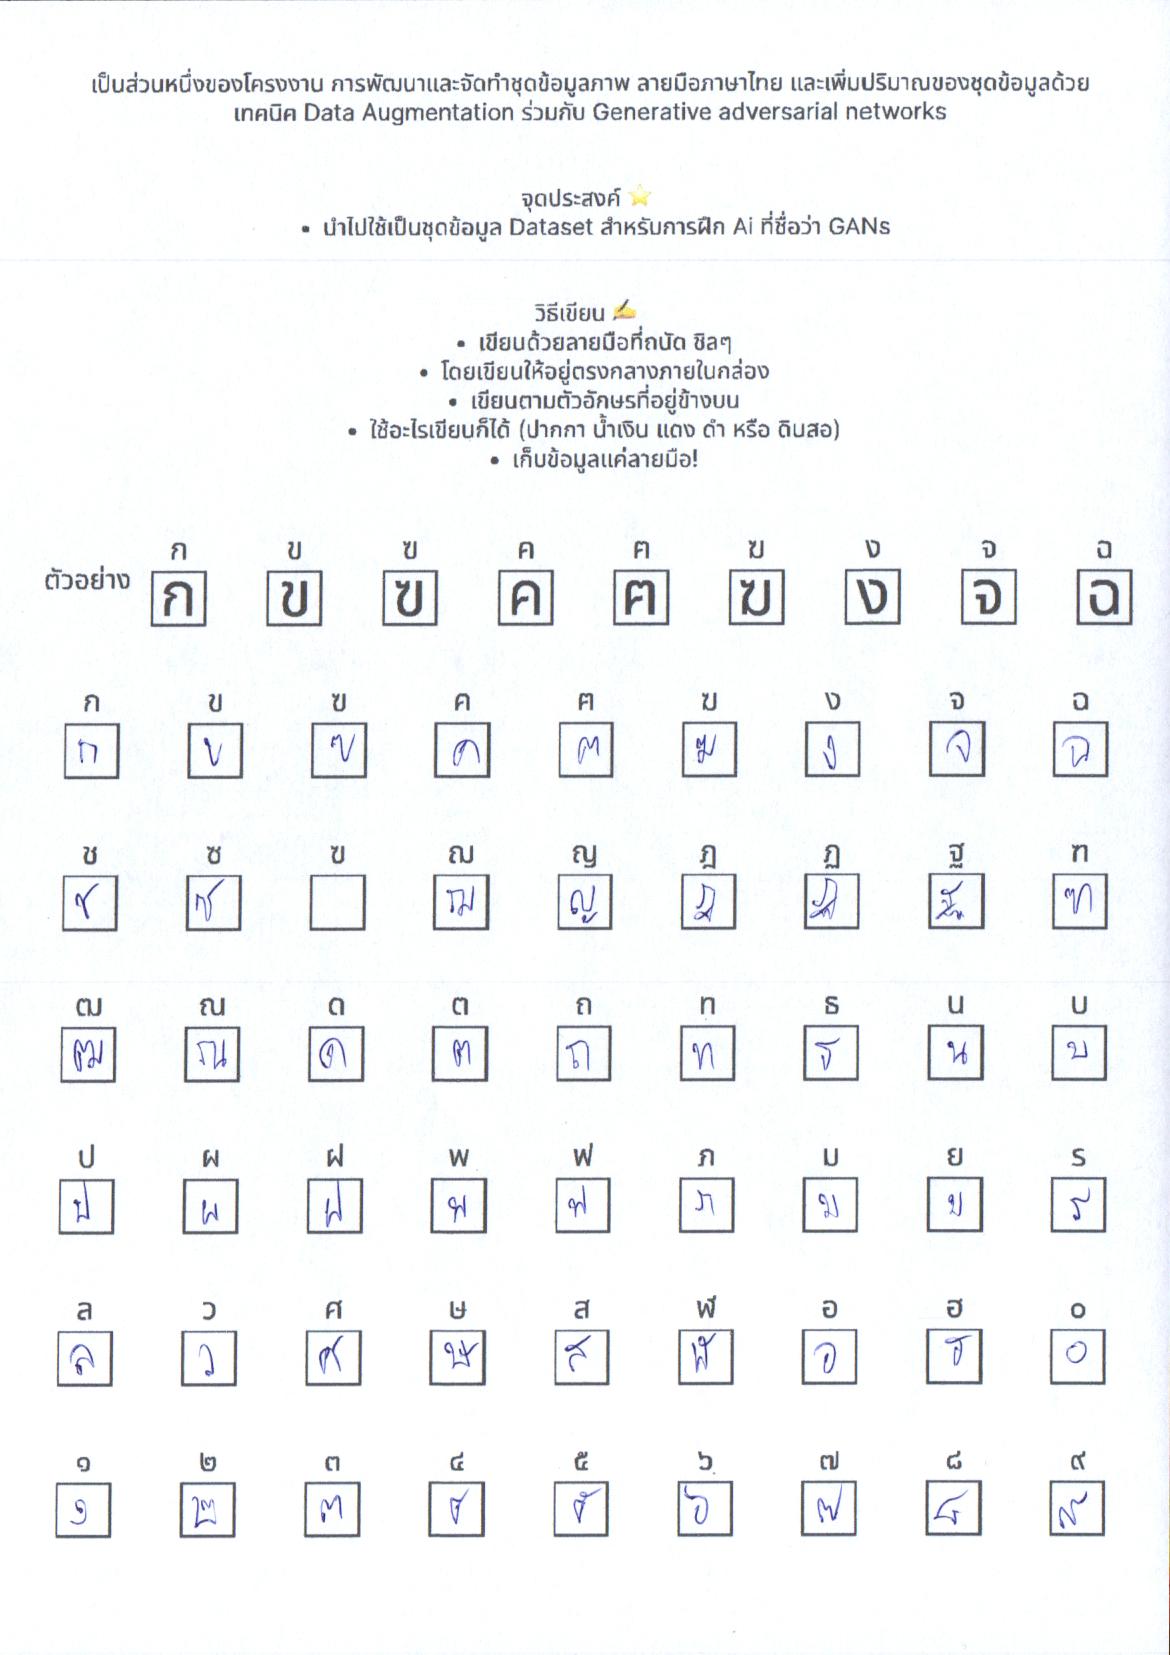 เป็นส่วนหนึ่งของโครงงาน การพัฒนาและจัดทำชุดข้อมูลภาพ ลายมือภาษาไทย และเพิ่มปริมาณของชุดข้อมูลด้วย
เทคนิค Data Augmentation ร่วมกับ Generative adversarial networks
จุดประสงค์ ⭐
• นำไปใช้เป็นชุดข้อมูล Dataset สำหรับการฝึก Ai ที่ชื่อว่า GANs
วิธีเขียน ✍
• เขียนด้วยลายมือที่ถนัด ชิลๆ
• โดยเขียนให้อยู่ตรงกลางภายในกล่อง
• เขียนตามตัวอักษรที่อยู่ข้างบน
• ใช้อะไรเขียนก็ได้ (ปากกา น้ำเงิน แดง ดำ หรือ ดินสอ)
• เก็บข้อมูลแค่ลายมือ!
ก ข ฃ ค ฅ ฆ ง จ ฉ
ตัวอย่าง ก ข ฃ ค ฅ ฆ ง จ ฉ
ก ข ฃ ค ฅ ฆ ง จ ฉ
ก ข ฃ ค ฅ ฆ ง จ ฉ
ช ซ ฃ ฌ ญ ฎ ฏ ฐ ฑ
ช ซ ฌ ญ ฎ ฏ ฐ ฑ
ฒ ณ ด ต ถ ท ธ น บ
ฒ ณ ด ต ถ ท ธ น บ
ป ผ ฝ พ ฟ ภ ม ย ร
ป ผ ฝ พ ฟ ภ ม ย ร
ล ว ศ ษ ส ฬ อ ฮ ๐
ล ว ศ ษ ส ฬ อ ฮ ๐
๑ ๒ ๓ ๔ ๕ ๖ ๗ ๘ ๙
๑ ๒ ๓ ๔ ๕ ๖ ๗ ๘ ๙